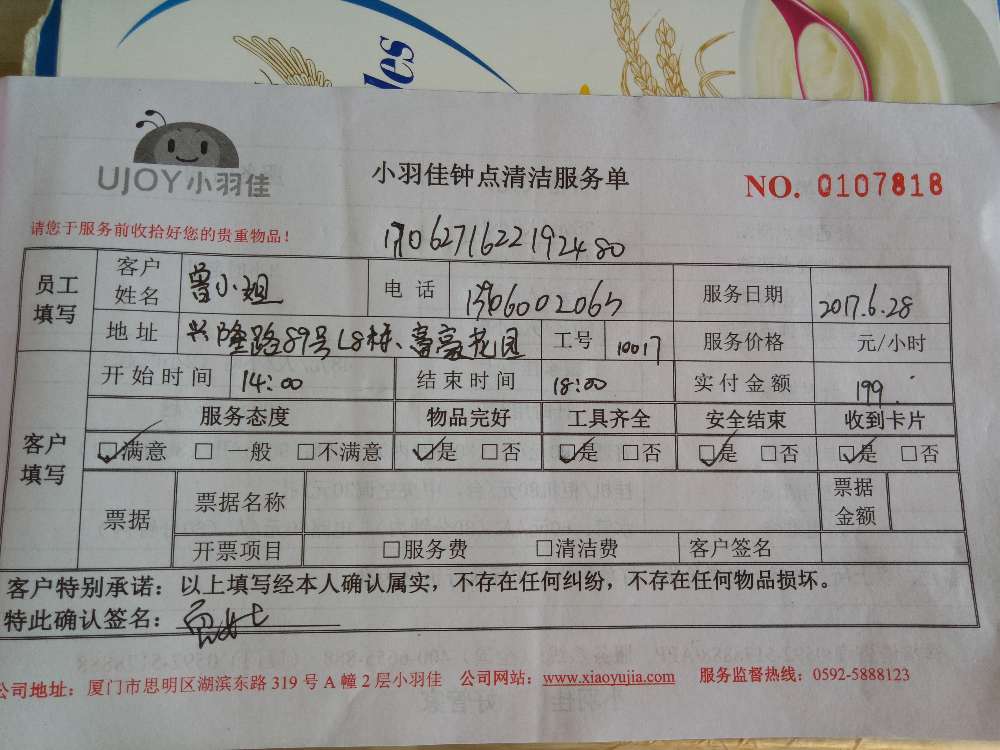 des
UJOY小羽佳
小羽佳钟点清洁服务单
NO. 0107818
请您于服务前收拾好您的贵重物品！
员工填写 客户姓名 曾小姐 电话 服务日期 2017.6.28
地址 兴隆路89号L8栋、富豪花园 工号 10017 服务价格 元/小时
客户填写 开始时间 14:00 结束时间 18:00 实付金额 199.
服务态度 物品完好 工具齐全 安全结束 收到卡片
☑满意 □一般 □不满意 ☑是 □否 ☑是 □否 ☑是 □否 ☑是 □否
票据 票据名称 票据金额
开票项目 □服务费 □清洁费 客户签名
客户特别承诺：以上填写经本人确认属实，不存在任何纠纷，不存在任何物品损坏。
特此确认签名：
公司地址：厦门市思明区湖滨东路 319 号 A 幢 2 层小羽佳 公司网站：www.xiaoyujia.com 服务监督热线：0592-5888123